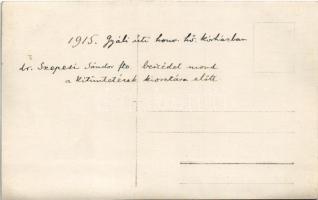 1915. Gyáli úti honv. hő. kórházban
dr. Szepesi Sándor fto. beszédet mond
a kitüntetések kiosztása előtt